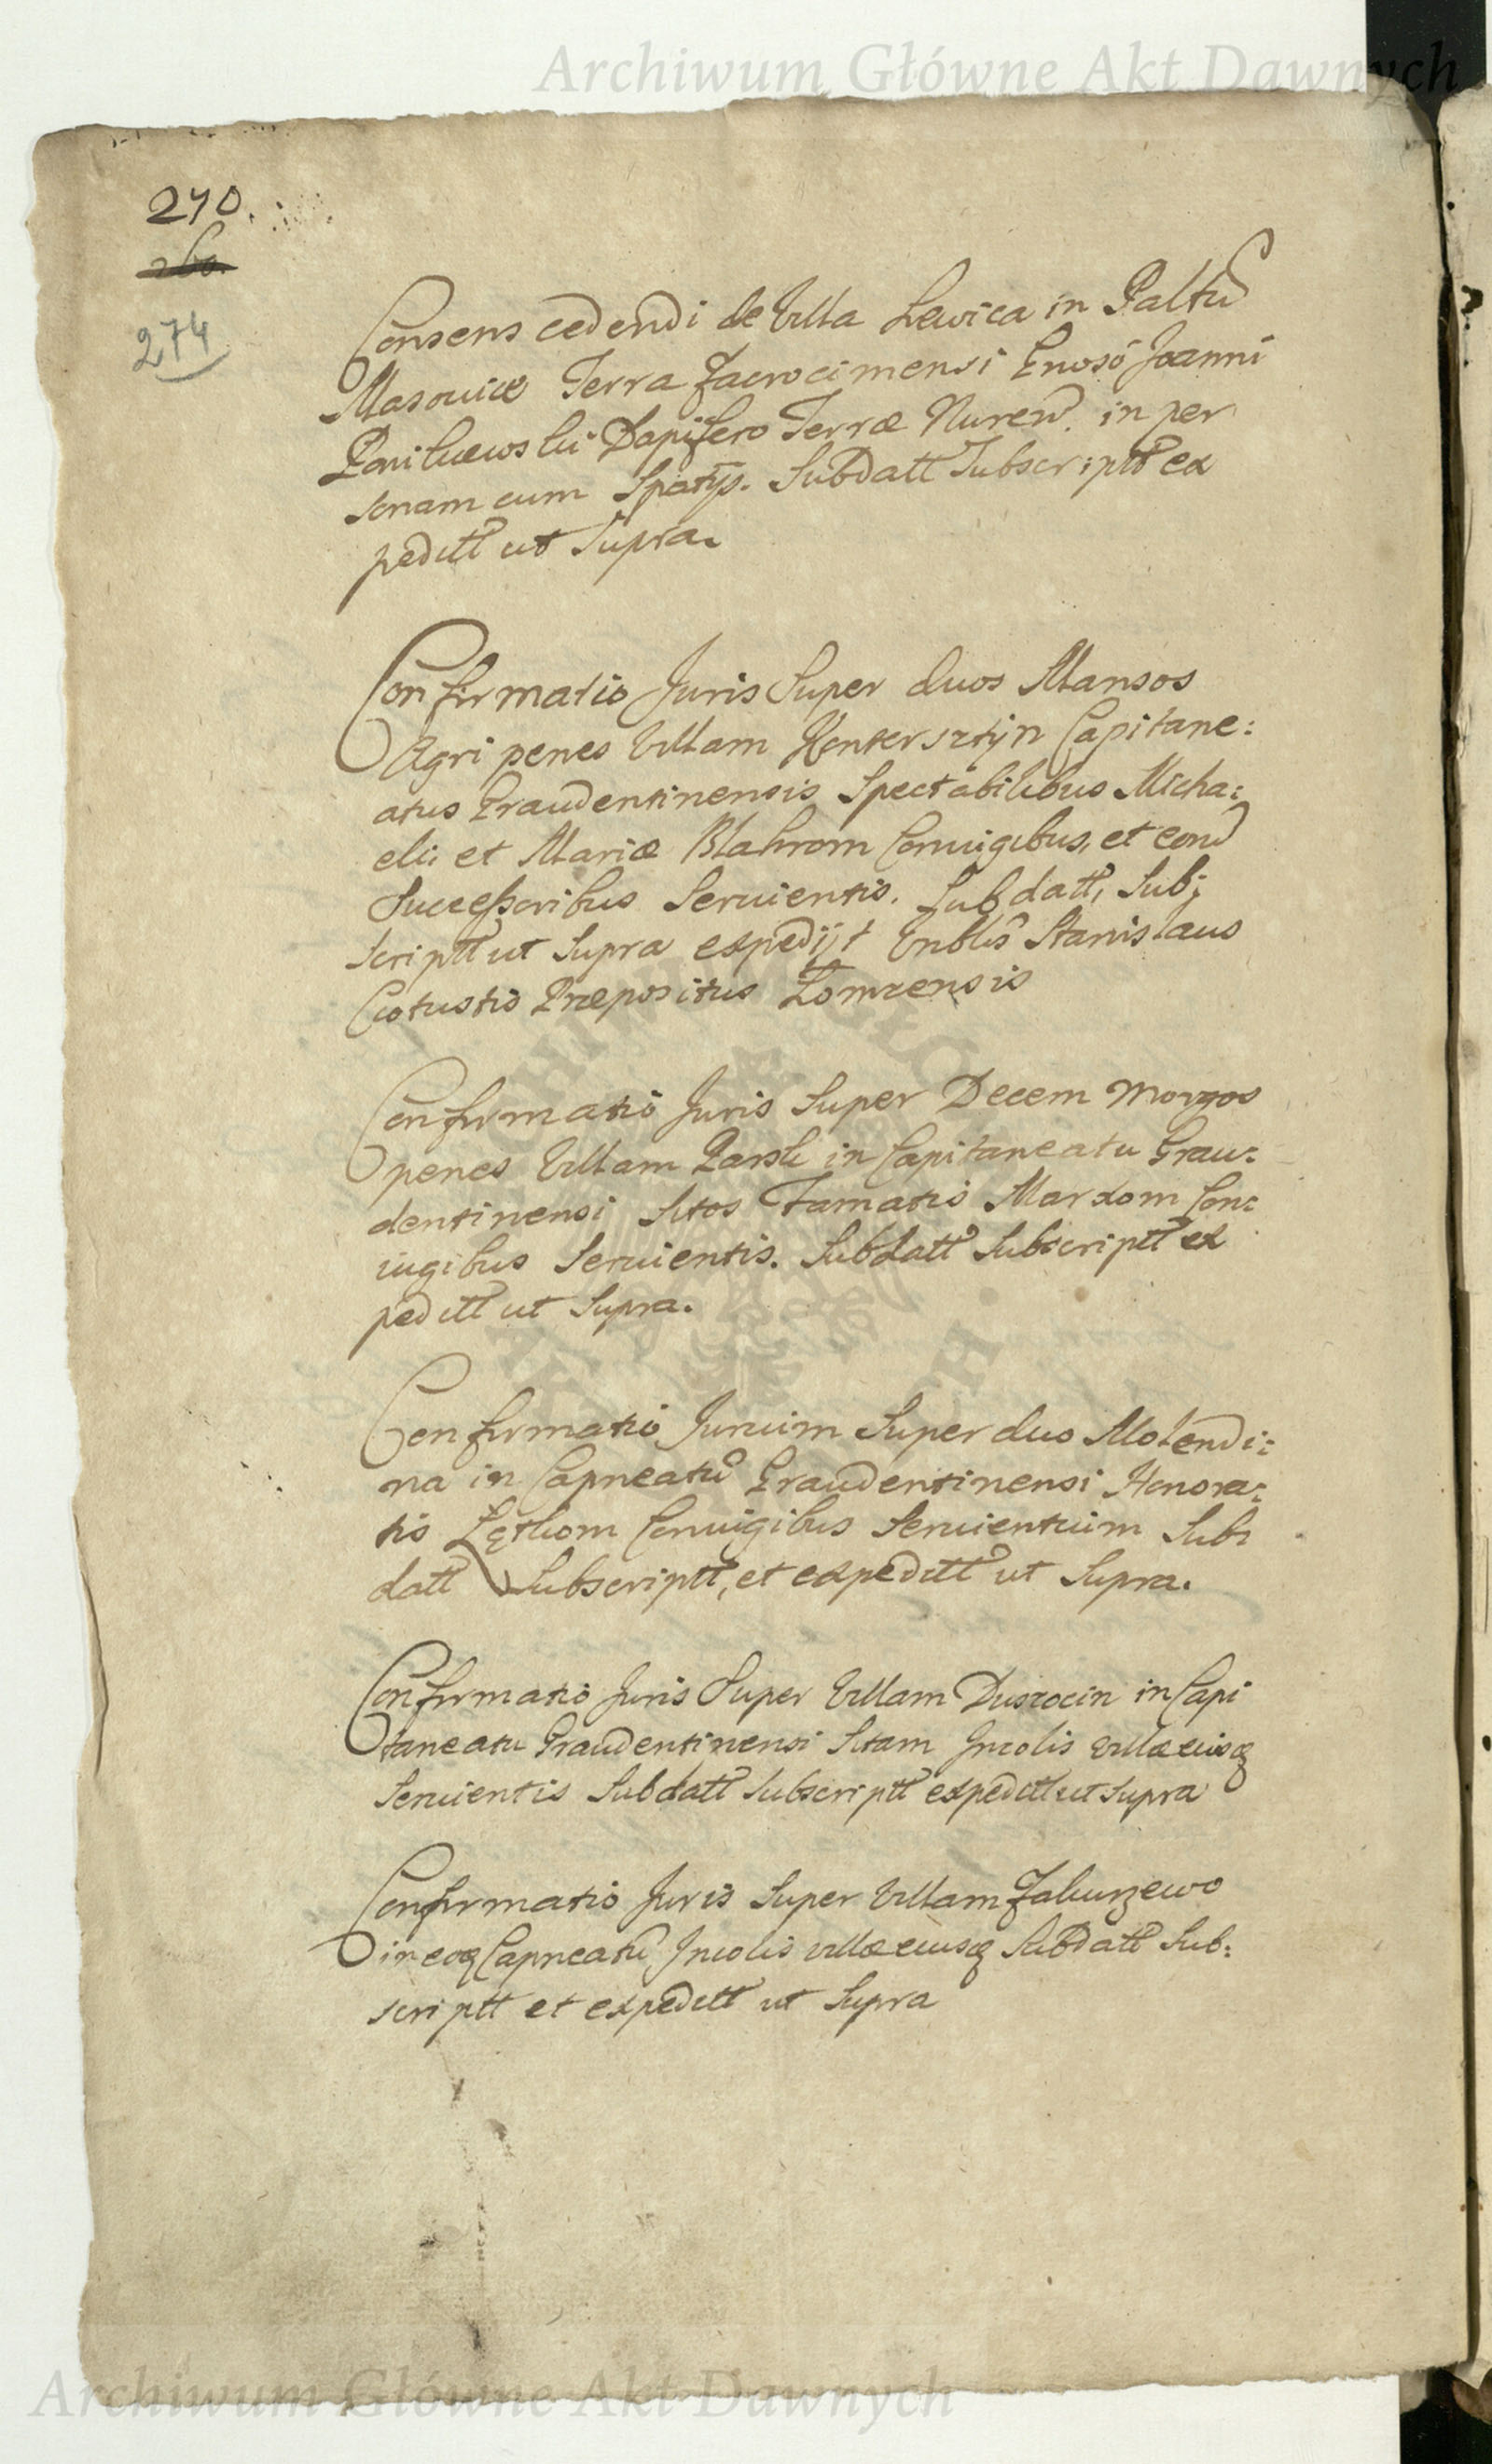 Archiwum Główne Akt Dawnych
270.
260.
274
Consens cedendi de Villa Lewica in Paltu
Masoviæ Terra Zacrocimensi Gnoso Joanni
Dapifero Terræ Nuren. in per
sonam eum Spatijs. Subdatt Subscriptt ex
peditt ut Supra.
Confirmatio Juris Super duos Mansos
Agri penes Villam Hontersztijn Capitane:
atus Graudentinensis Spectabilibus Micha:
eli et Mariæ Blahrom Coniugibus, et eoru
Successoribus Seruientis. Subdatt, Sub:
scriptt ut Supra expedijt Stanislaus
Præpositus Lomzensis
Confirmatio Juris Super Decem Morgos
penes Villam Parsk in Capitaneatu Grau:
dentinensi Sitos Famatis Marxom Con:
iugibus Seruientis. Subdatt Subscriptt ex
peditt ut Supra.
Confirmatio Jurium Super duo Molendi:
na in Capneatu Graudentinensi Honora:
tis Coniugibus Seruientium Sub:
datt Subscriptt, et expeditt ut Supra.
Confirmatio Juris Super Villam Dusrocin in Capi
taneatu Graudentinensi Sitam Incolis Villæ eiusq
Seruientis Subdatt Subscriptt expeditt ut Supra
Confirmatio Juris Super Villam Zakurzewo
in eoq Capneatu Incolis villæ eiusq Subdatt Sub:
scriptt et expeditt ut Supra
Archiwum Główne Akt Dawnych